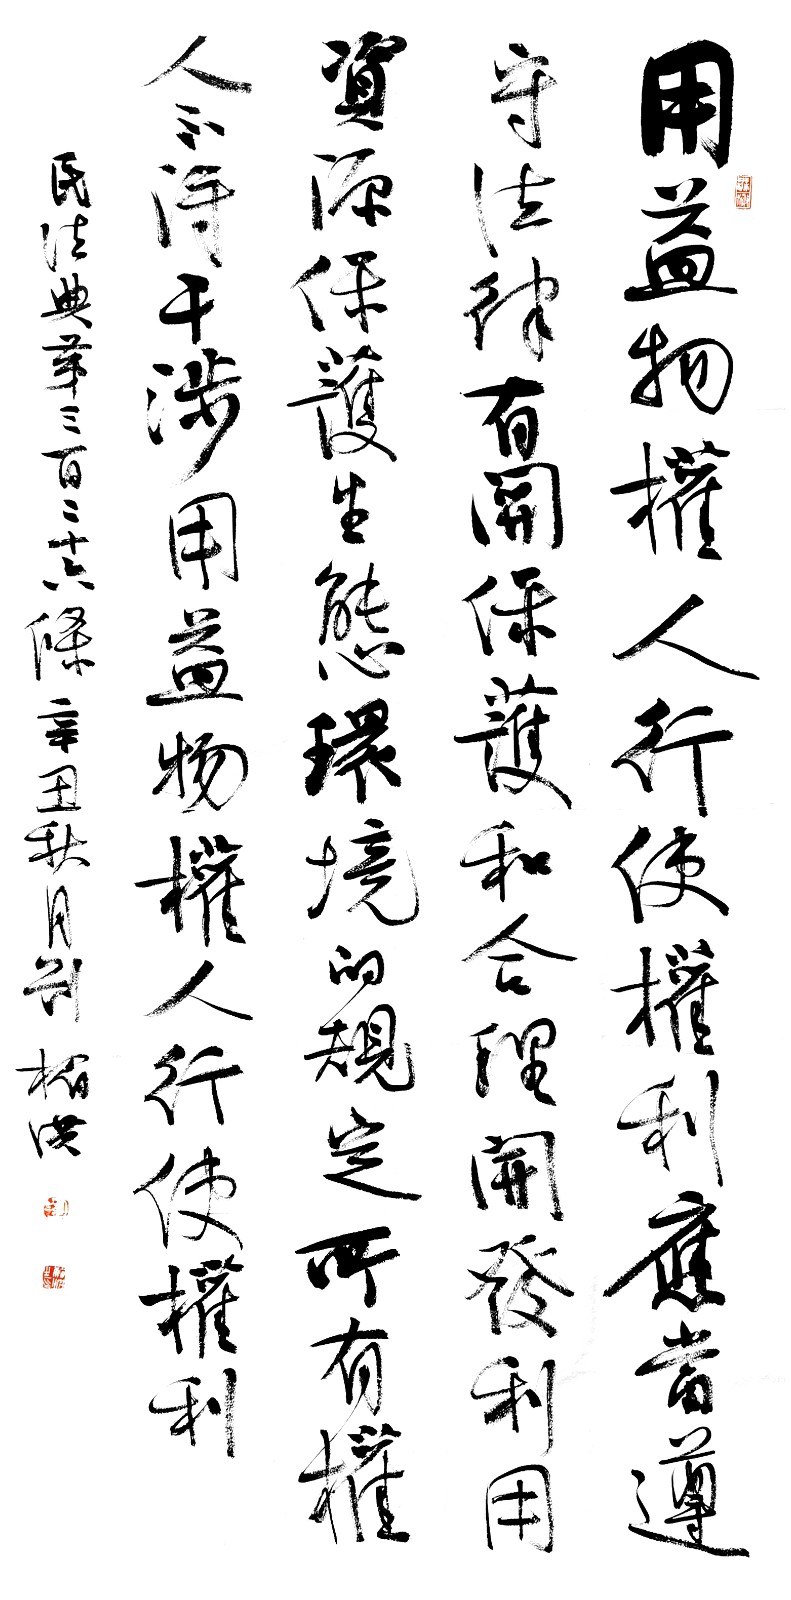 用益物權人行使權利應當遵
守法律有關保護和合理開發利用
資源保護生態環境的規定所有權
人不得干涉用益物權人行使權利
民法典第三百二十六條辛丑秋月劉楣洪